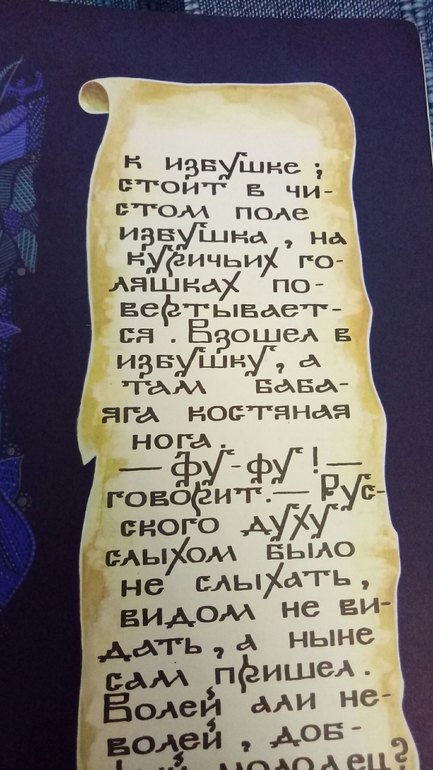 к избушке ;
стоит в чи-
стом поле
избушка , на
куричьих го-
ляшках по-
вертывает-
ся . Взошел в
избушку , а
там баба-
яга костяная
нога .
— фу - фу ! —
говорит. — Рус-
ского духу
слыхом было
не слыхать ,
видом не ви-
дать , а ныне
сам пришел .
Волей али не-
волей , доб-
молодец ?